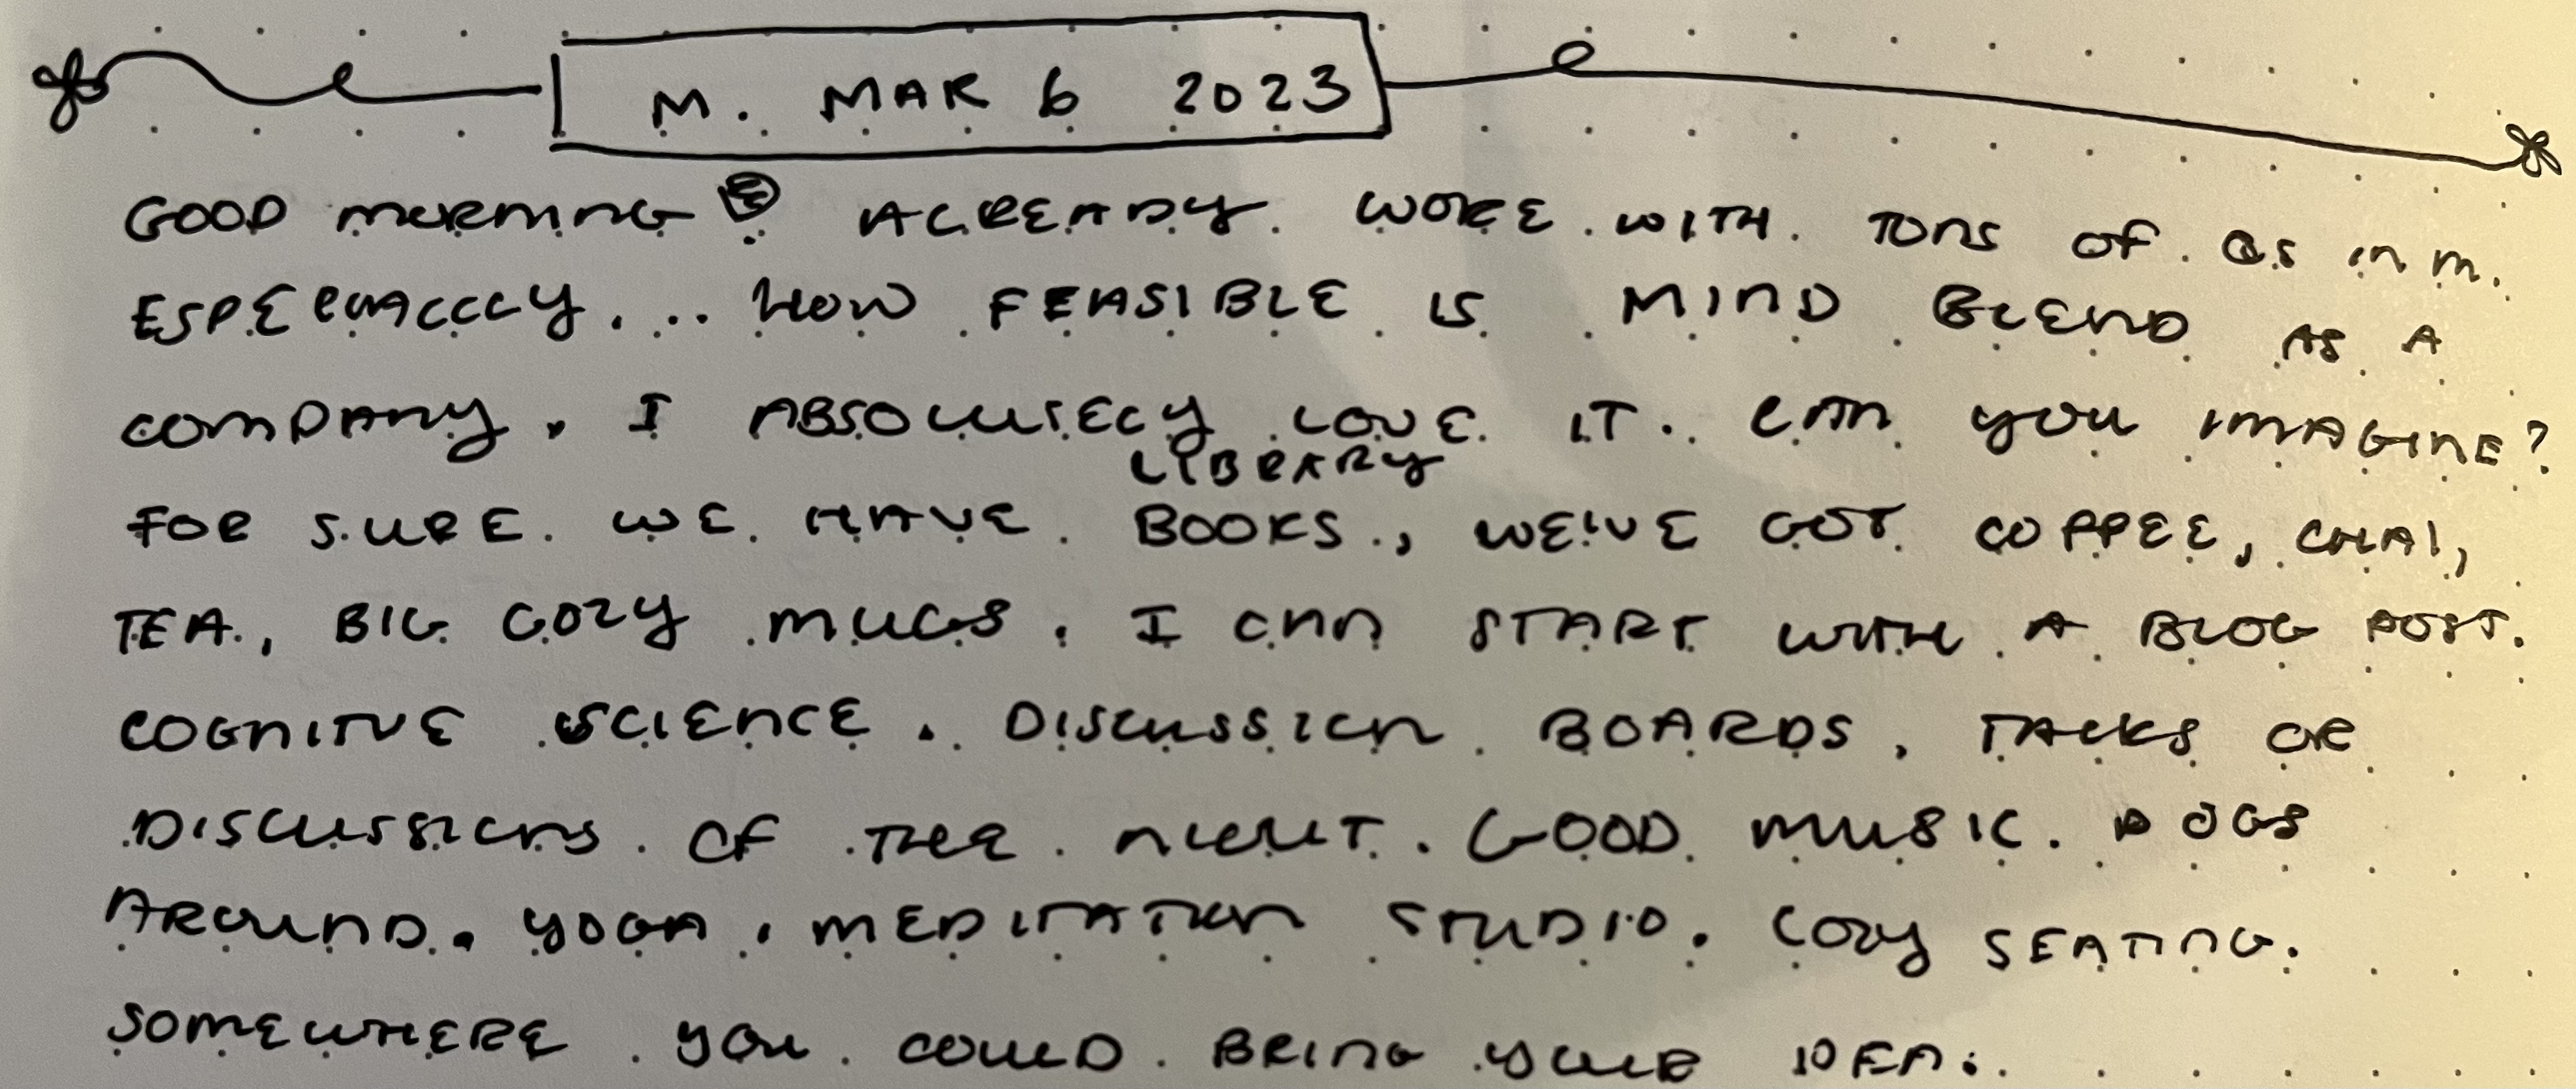 M. MAR 6 2023
GOOD MORNING ALREADY WOKE WITH TONS OF QS IN M.
ESPECIALLY... HOW FEASIBLE IS MIND BLEND AS A
COMPANY. I ABSOLUTELY LOVE IT. CAN YOU IMAGINE?
LIBRARY
FOR SURE WE HAVE BOOKS, WE'VE GOT COFFEE, CHAI,
TEA, BIG COZY MUGS. I CAN START WITH A BLOG POST.
COGNITIVE SCIENCE. DISCUSSION BOARDS. TALKS OR
DISCUSSIONS OF THE NIGHT. GOOD MUSIC. DOGS
AROUND. YOGA, MEDITATION STUDIO. COZY SEATING.
SOMEWHERE YOU COULD BRING YOUR IDEA.